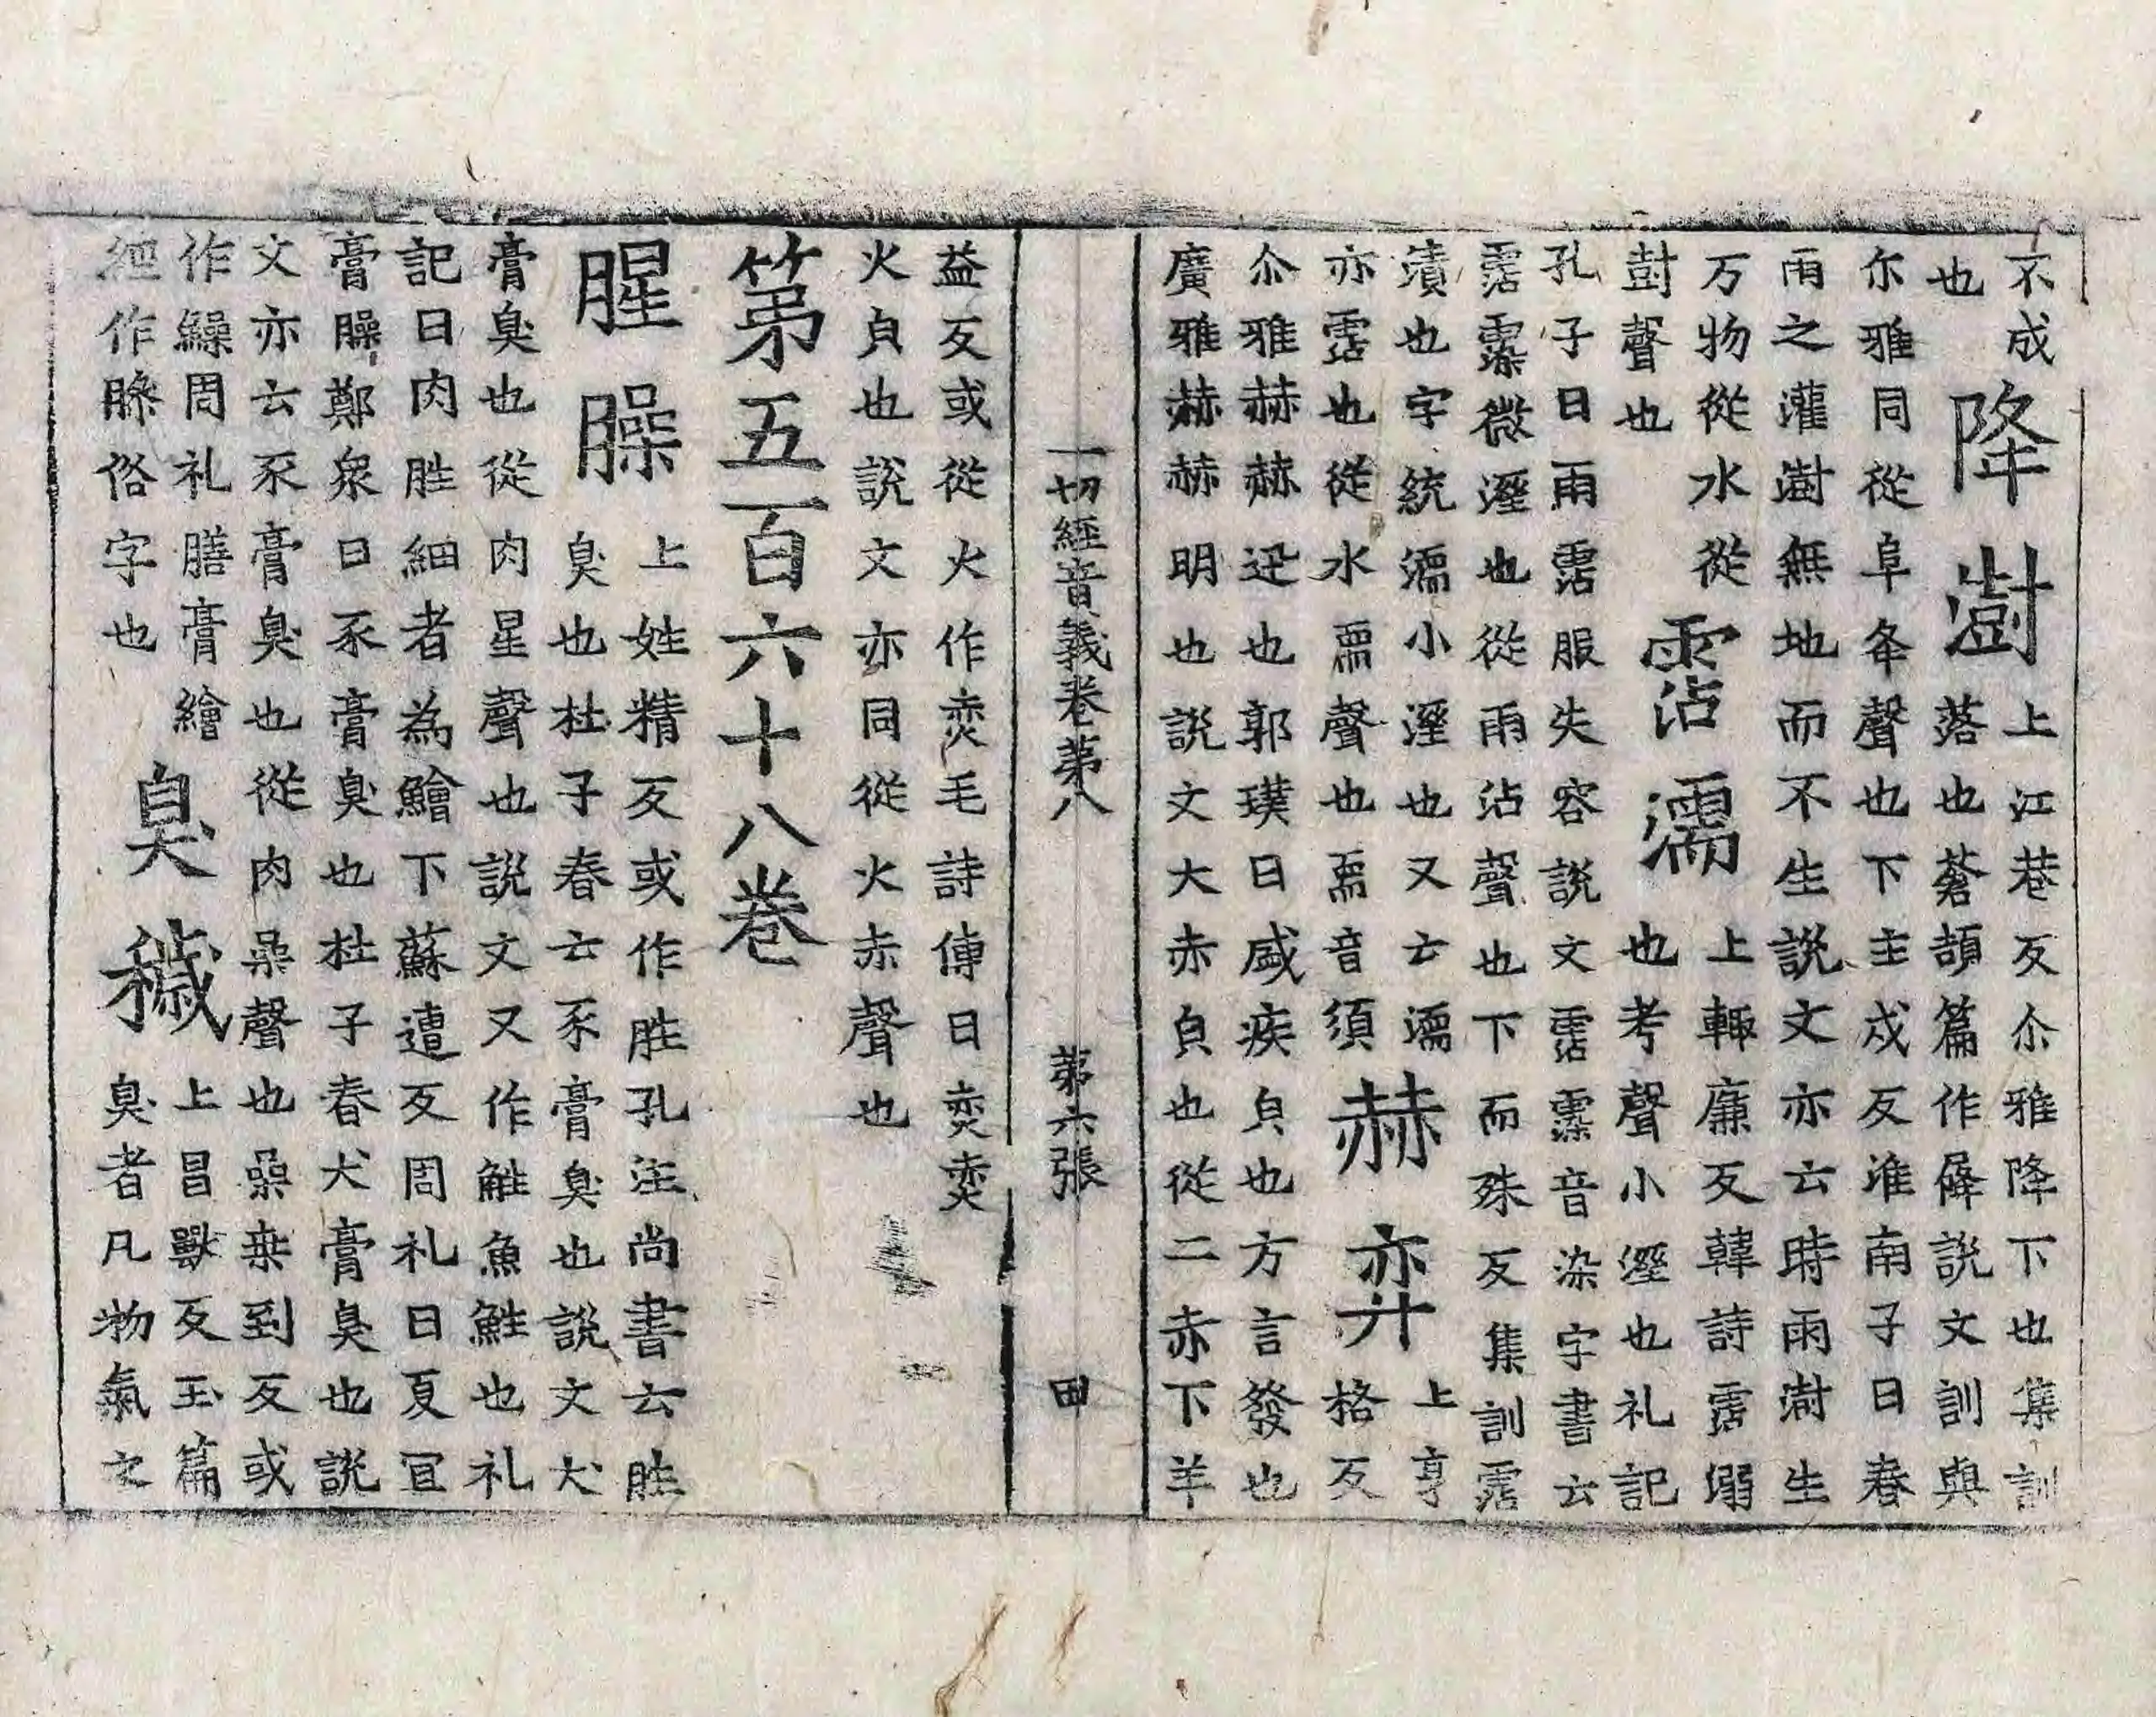 不成降澍上江巷反尒雅降下也集訓
也落也蒼頡篇作夅說文訓與
尔雅同從阜夅聲也下主戍反淮南子曰春
雨之灌澍無地而不生說文亦云時雨澍生
万物從水從霑濡上輒廉反韓詩霑溺
尌聲也也考聲小溼也礼記
孔子曰雨霑服失容說文霑䨴音染字書云
霑䨴微溼也從雨沾聲也下而殊反集訓霑
漬也字統濡小溼也又云濡赫弈上亨
亦霑也從水需聲也需音須格反
尒雅赫赫迅也郭璞曰盛疾皃也方言發也
廣雅赫赫明也說文大赤皃也從二赤下羊
一切經音義卷第八 第六張 田
益反或從火作焲毛詩傳曰焲焲
火皃也說文亦同從火亦聲也
第五百六十八卷
腥臊上姓精反或作胜孔注尚書云胜
臭也杜子春云豕膏臭也說文犬
膏臭也從肉星聲也說文又作鮏魚鮏也礼
記曰肉胜細者為鱠下蘇遭反周礼曰夏宜
膏臊鄭眾曰豕膏臭也杜子春犬膏臭也說
文亦云豕膏臭也從肉喿聲也喿桒到反或
作鱢周礼膳膏繪臭穢上昌獸反玉篇
經作𦠄俗字也臭者凡物氣之